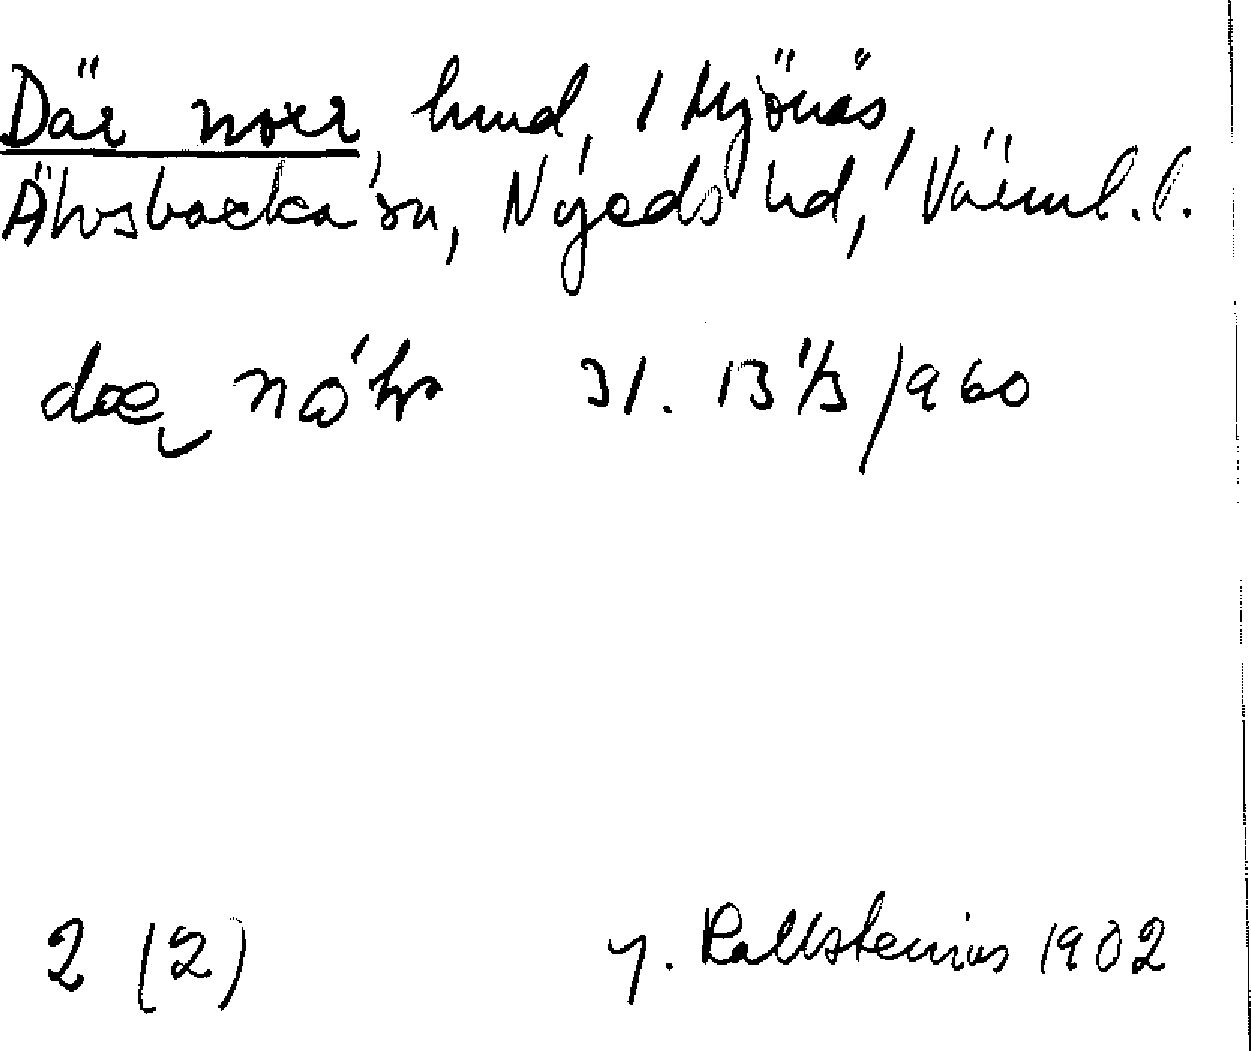 Där norr, hmd, 1 Mjönäs,
Älvsbacka sn, Nyeds hd, Värml. l.
31. 13 1/3 1960
2 (2) G. Kallstenius 1902